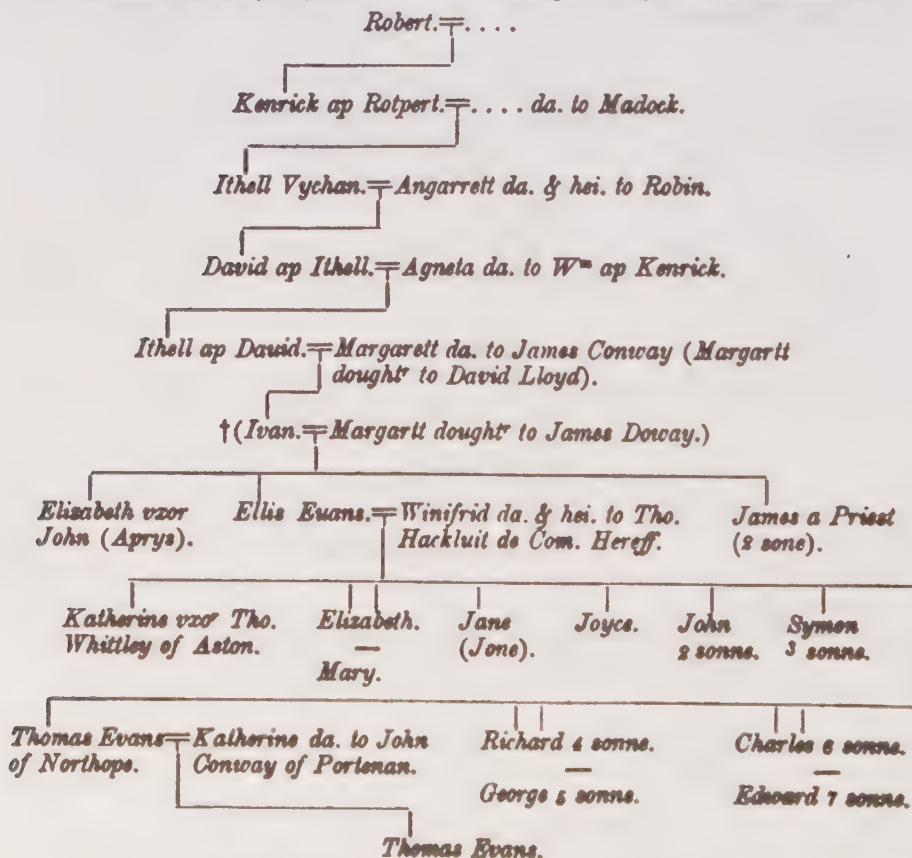 Robert. = . . . .
Kenrick ap Rotpert. = . . . . da. to Madock.
Ithell Vychan. = Angarrett da. & hei. to Robin.
David ap Ithell. = Agneta da. to Wm ap Kenrick.
Ithell ap Dauid. = Margarett da. to James Conway (Margartt
doughtr to David Lloyd).
† (Ivan. = Margartt doughtr to James Doway.)
Elizabeth vxor
John (Aprys).
Ellis Euans. = Winifrid da. & hei. to Tho.
Hackluit de Com. Hereff.
James a Priest
(2 sone).
Katherine vxor Tho.
Whittley of Aston.
Elizabeth.
Mary.
Jane
(Jone).
Joyce.
John
2 sonne.
Symon
3 sonne.
Thomas Evans = Katherine da. to John
of Northope. Conway of Portenan.
Richard 4 sonne.
George 5 sonne.
Charles 6 sonne.
Edward 7 sonne.
Thomas Evans.